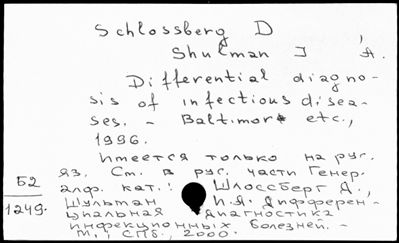 Schlossberg D
Shulman I, A.
Differential diagno-
sis of infectious disea-
ses. - Baltimore etc.,
1996.
Имеется только на рус.
яз. См. в рус. части Генер.
алф. кат.: Шлоссберг Д.,
Шульман И.А. Дифферен-
циальная диагностика
инфекционных болезней. -
М., СПб., 2000.
Б2
1249.